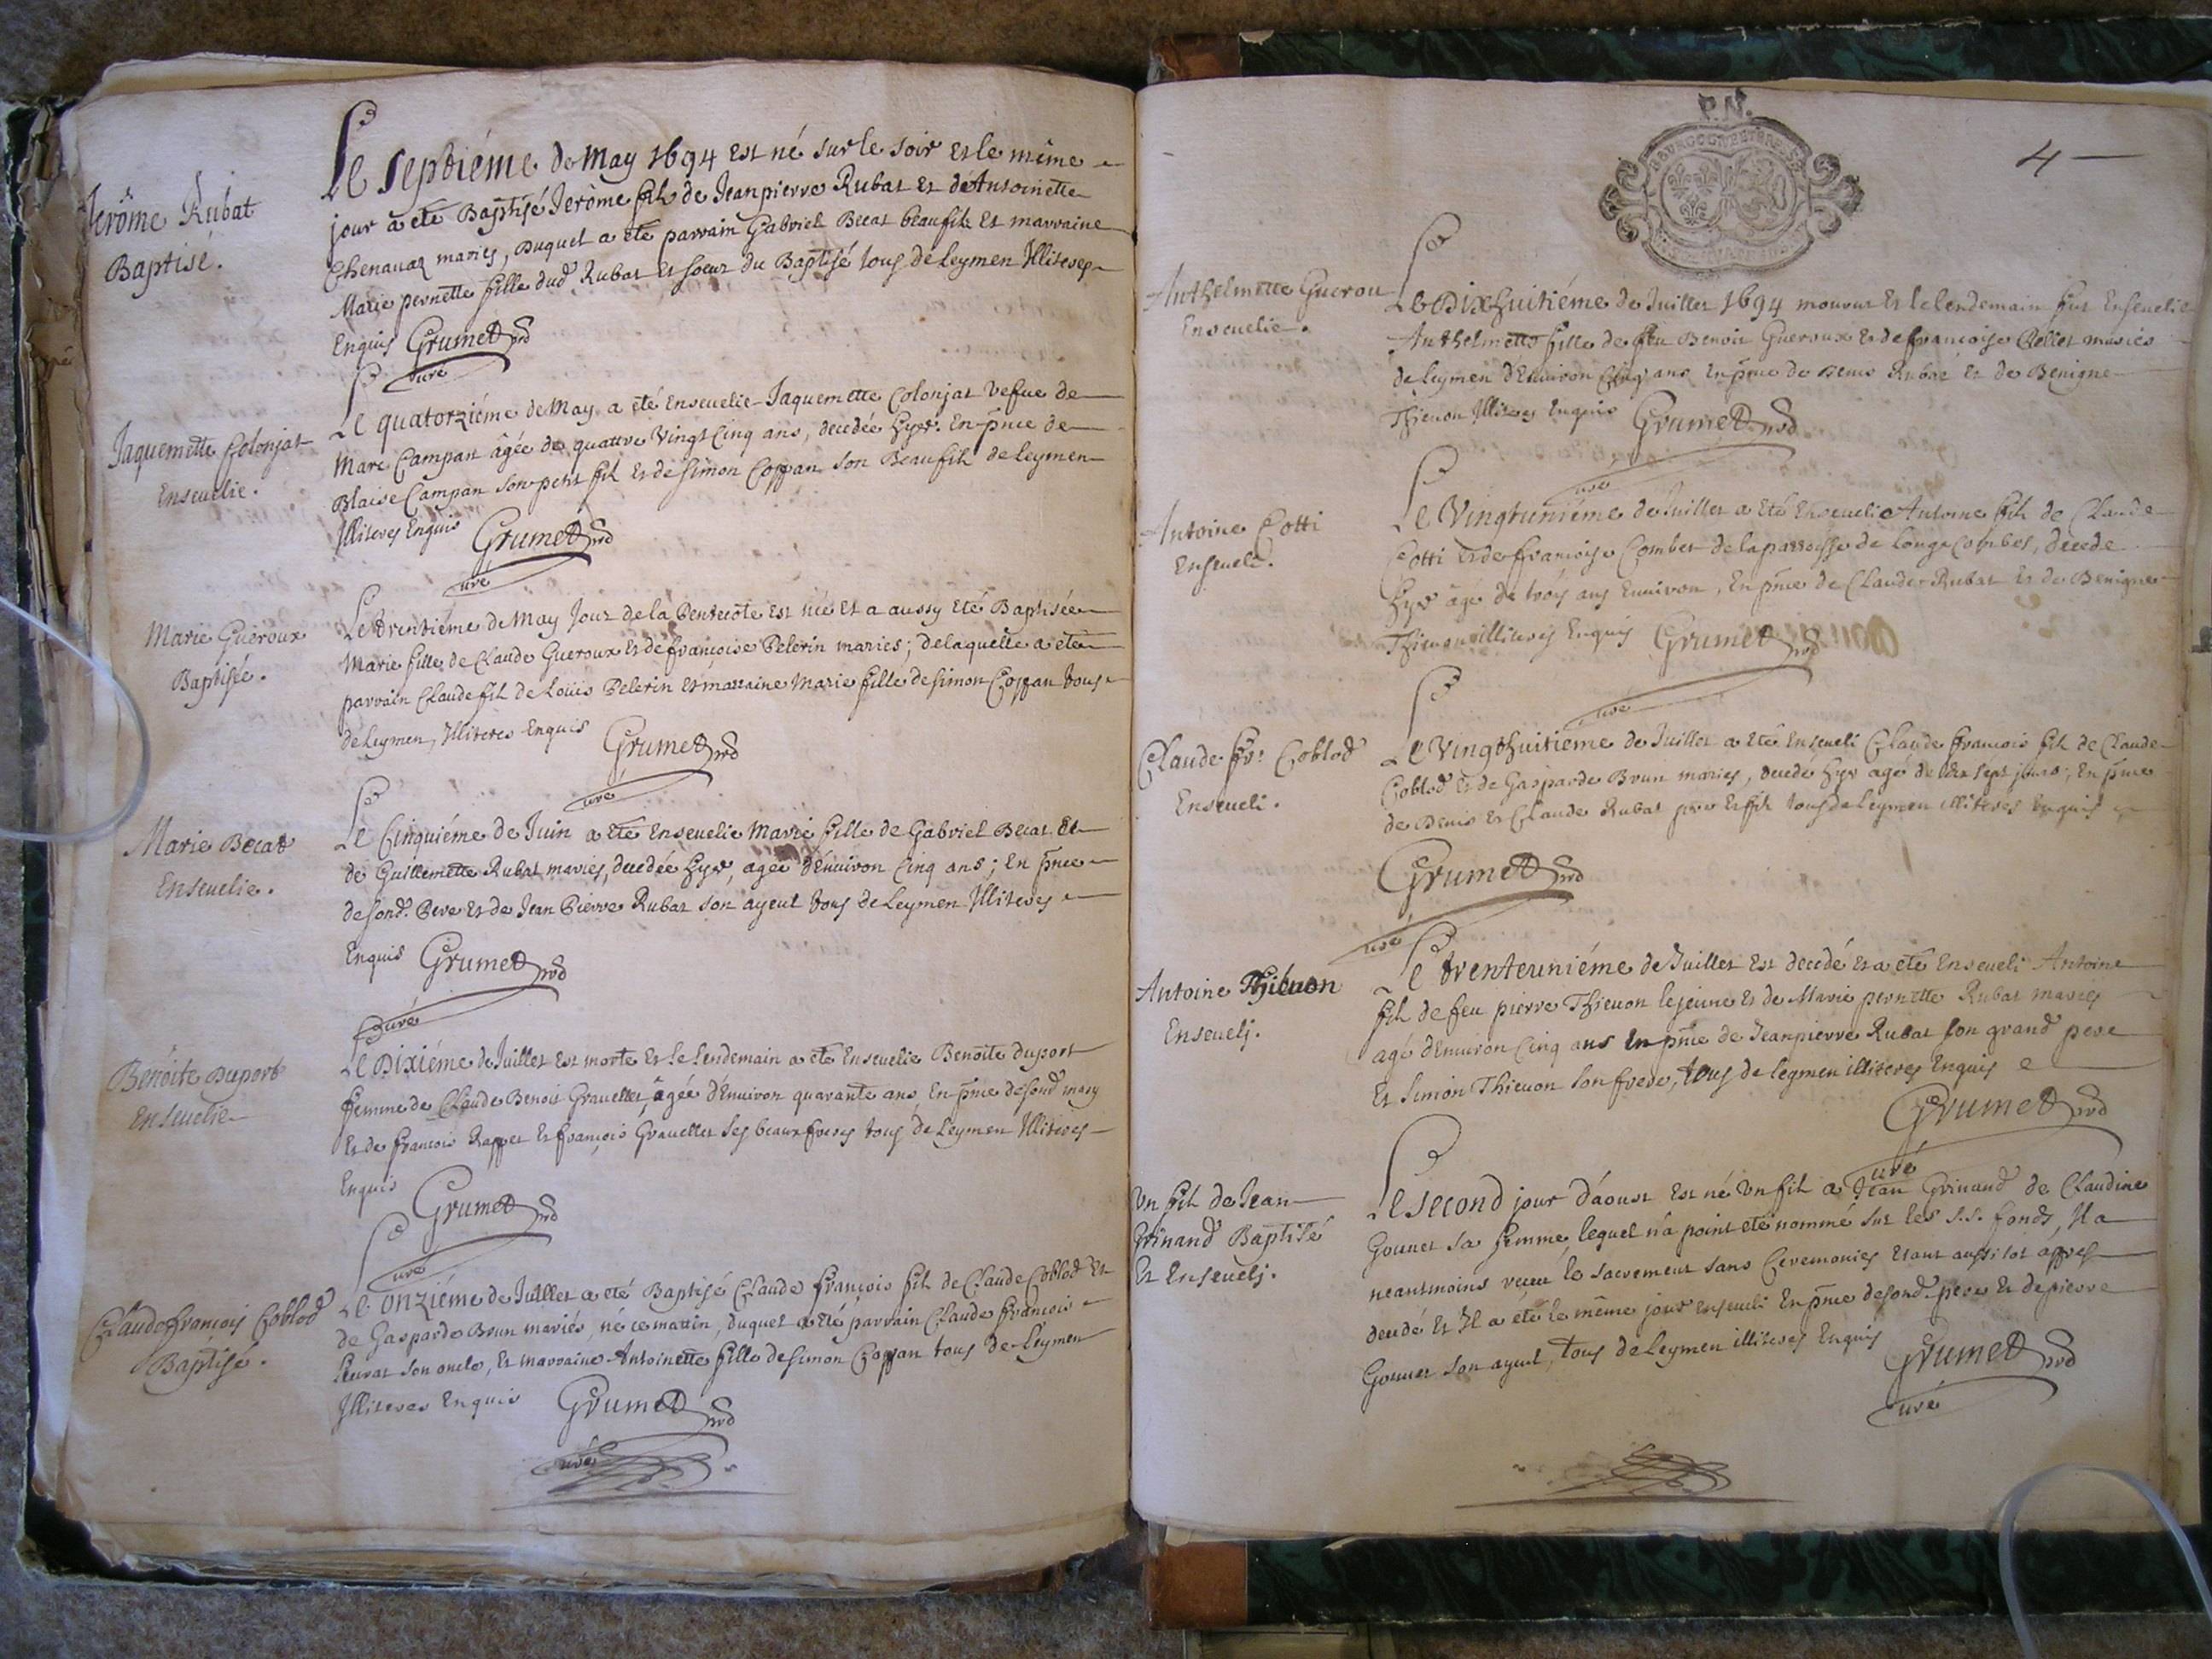 Jerôme Rubat
Baptisé.
Le Septiéme de May 1694 est né sur le soir et le même
jour a eté Baptisé Jerôme fils de Jeanpierre Rubat et de Antoinette
Chenauaz mariés, Duquel a eté parrain Gabriel Becat beaufils et marraine
Marie pernette fille dud Rubat et soeur du Baptisé tous de Leymen Illiteres
Enquis Grumet
curé
Jaquemette Colonjat
Enseuelie.
Le quatorziéme de May a eté Enseuelie Jaquemette Colonjat Vefue de
Marc Campan âgée de quattre Vingt Cinq ans, decedée hyer. En pnce de
Blaise Campan son petit fils et de Simon Coppan son Beaufils de Leymen
Illiteres Enquis Grumet
curé
Marie Gueroux
Baptisée.
Le trentiéme de May Jour de la Pentecôte est née et a aussy eté Baptisée
Marie fille de Claude Gueroux et de françoise Pelerin mariés; de laquelle a eté
parrain Claude fils de Loüis Pelerin et marraine Marie fille de Simon Coppan tous
de Leymen, Illiteres Enquis Grumet
curé
Marie Becat
Enseuelie.
Le Cinquiéme de Juin a eté Enseuelie Marie fille de Gabriel Becat et
de Guillemette Rubat mariés, decedée hyer, agée d'Enuiron Cinq ans; En pnce
de sond. Pere et de Jean Pierre Rubat son ayeul tous de Leymen Illiteres
Enquis Grumet
Curé
Benoite Duport
Enseuelie
Le Dixiéme de Juillet est morte et le Lendemain a eté Enseuelie Benoite Duport
femme de Claude Benoit Grauellet, âgée d'Enuiron quarante ans, En pnce de sond mary
et de francois Rappet et françois Grauellet ses beaux freres tous de Leymen Illiteres
Enquis Grumet
curé
Claude françois Coblod
Baptisé.
Le onziéme de Juillet a eté Baptisé Claude françois fils de Claude Coblod et
de Gasparde Brun mariés, né ce matin, duquel a eté parrain Claude françois
son oncle, et marraine Antoinette fille de Simon Coppan tous de Leymen
Illiteres Enquis Grumet
curé
P.N.
4
Anthelmette Guerou
Enseuelie.
Le Dixhuitiéme de Juillet 1694 mourut et le lendemain fut Enseuelie
Anthelmette fille de feu Benoit Gueroux et de françoise Pellet mariés
de Leymen d'Enuiron Cinq ans En pnce de Denis Rubat et de Benigne
Thieuon Illiteres Enquis Grumet
curé
Antoine Cotti
Enseueli.
Le Vingtuniéme de Juillet a eté Enseueli Antoine fils de Claude
Cotti et de francoise Combet de la parroisse de Longecombes, decede
hyer âgé de trois ans Enuiron, En pnce de Claude Rubat et de Benigne
Thieuon illiteres Enquis Grumet
curé
Claude fr: Coblod
Enseueli.
Le Vingthuitiéme de Juillet a eté Enseueli Claude francois fils de Claude
Coblod et de Gasparde Brun mariés, decedé hyer agé de dix sept jours; En pnce
de Denis et Claude Rubat pere et fils tous de Leymen illiteres Enquis
Grumet
curé
Antoine Thieuon
Enseuelj.
Le trenteuniéme de Juillet est decedé et a eté Enseueli Antoine
fils de feu pierre Thieuon le jeune et de Marie pernette Rubat mariés
agé d'Enuiron Cinq ans En pnce de Jeanpierre Rubat son grand pere
et Simon Thieuon son frere, tous de leymen illiteres Enquis
Grumet
curé
Un fils de Jean
Grinand Baptisé
et Enseuelj.
Le second jour d'aoust est né Un fils a Jean Grinand de Claudine
Gouuet sa femme, lequel n'a point eté nommé sur les s.s. fonds, Il a
neantmoins receu le sacrement sans Ceremonies etant aussi tot apres
decedé et Il a eté le même jour enseueli En pnce de sond. pere et de pierre
Gouuet son ayeul, tous de Leymen illiteres Enquis Grumet
curé